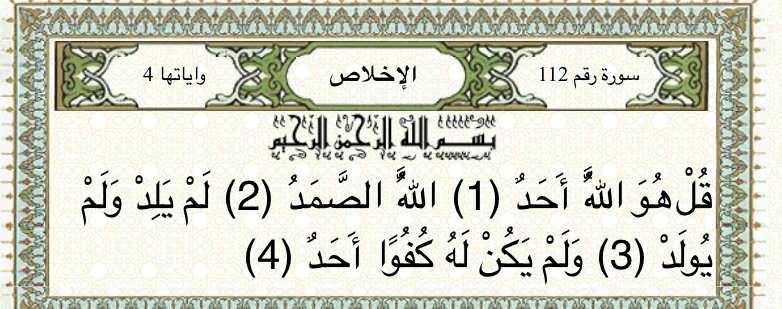 سورة رقم 112 الإخلاص واياتها 4
بسم الله الرحمن الرحيم
قُلْ هُوَ اللَّهُ أَحَدٌ (1) اللَّهُ الصَّمَدُ (2) لَمْ يَلِدْ وَلَمْ
يُولَدْ (3) وَلَمْ يَكُنْ لَهُ كُفُوًا أَحَدٌ (4)